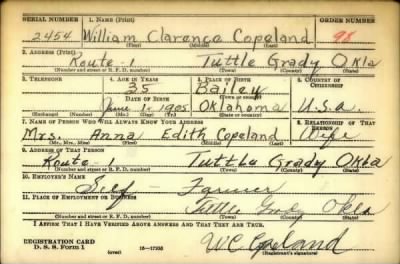 SERIAL NUMBER 1. NAME (Print) ORDER NUMBER
2454 William Clarence Copeland 98
(First) (Middle) (Last)
2. ADDRESS (Print)
Route-1 Tuttle Grady Okla
(Number and street or R. F. D. number) (Town) (County) (State)
3. TELEPHONE 4. AGE IN YEARS 5. PLACE OF BIRTH 6. COUNTRY OF CITIZENSHIP
35 Bailey
DATE OF BIRTH (Town or county)
June 1 1905 Oklahoma U.S.A.
(Exchange) (Number) (Mo.) (Day) (Yr.) (State or country)
7. NAME OF PERSON WHO WILL ALWAYS KNOW YOUR ADDRESS 8. RELATIONSHIP OF THAT PERSON
Mrs. Anna Edith Copeland Wife
(Mr., Mrs., Miss) (First) (Middle) (Last)
9. ADDRESS OF THAT PERSON
Route-1 Tuttle Grady Okla
(Number and street or R. F. D. number) (Town) (County) (State)
10. EMPLOYER'S NAME
Self - Farmer
11. PLACE OF EMPLOYMENT OR BUSINESS
Tuttle Okla
(Number and street or R. F. D. number) (Town) (County) (State)
I AFFIRM THAT I HAVE VERIFIED ABOVE ANSWERS AND THAT THEY ARE TRUE.
REGISTRATION CARD
D. S. S. Form 1 (over) W C Copeland
(Registrant's signature)